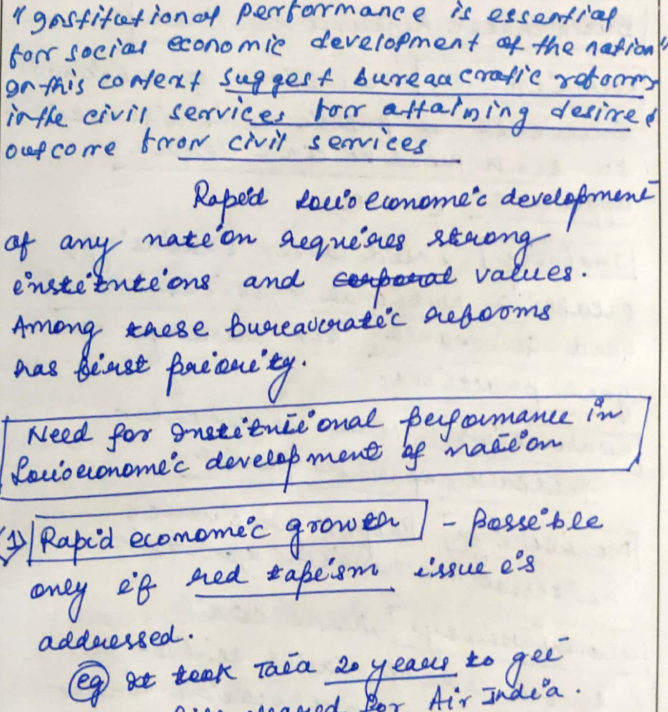 "Institutional performance is essential
for social economic development of the nation"
In this context suggest bureaucratic reforms
in the civil services for attaining desired
outcome from civil services
Rapid socio economic development
of any nation requires strong
institutions and corporal values.
Among these bureaucratic reforms
has first priority.
Need for Institutional performance in
Socioeconomic development of nation
(1) Rapid economic growth - possible
only if red tapism issue is
addressed.
eg It took Tata 20 years to get
for Air India.